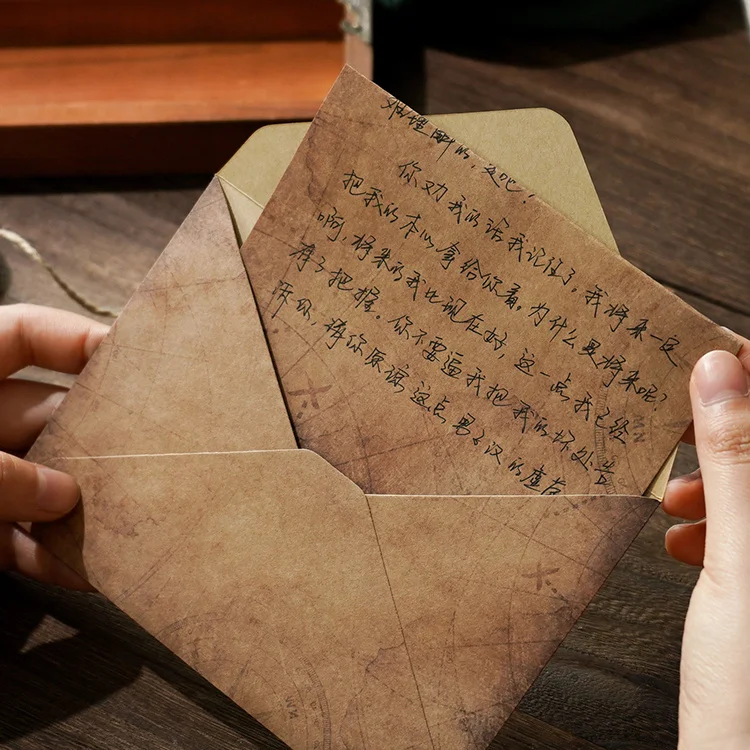 难理解的,是吧!
你劝我的话我记住了,我将来一定
把我的本心拿给你看。为什么是将来呢?
啊,将来的我比现在好,这一点我已经
有了把握。你不要逼我把我的坏处告
诉你,请你原谅这点男子汉的虚
NW
NW